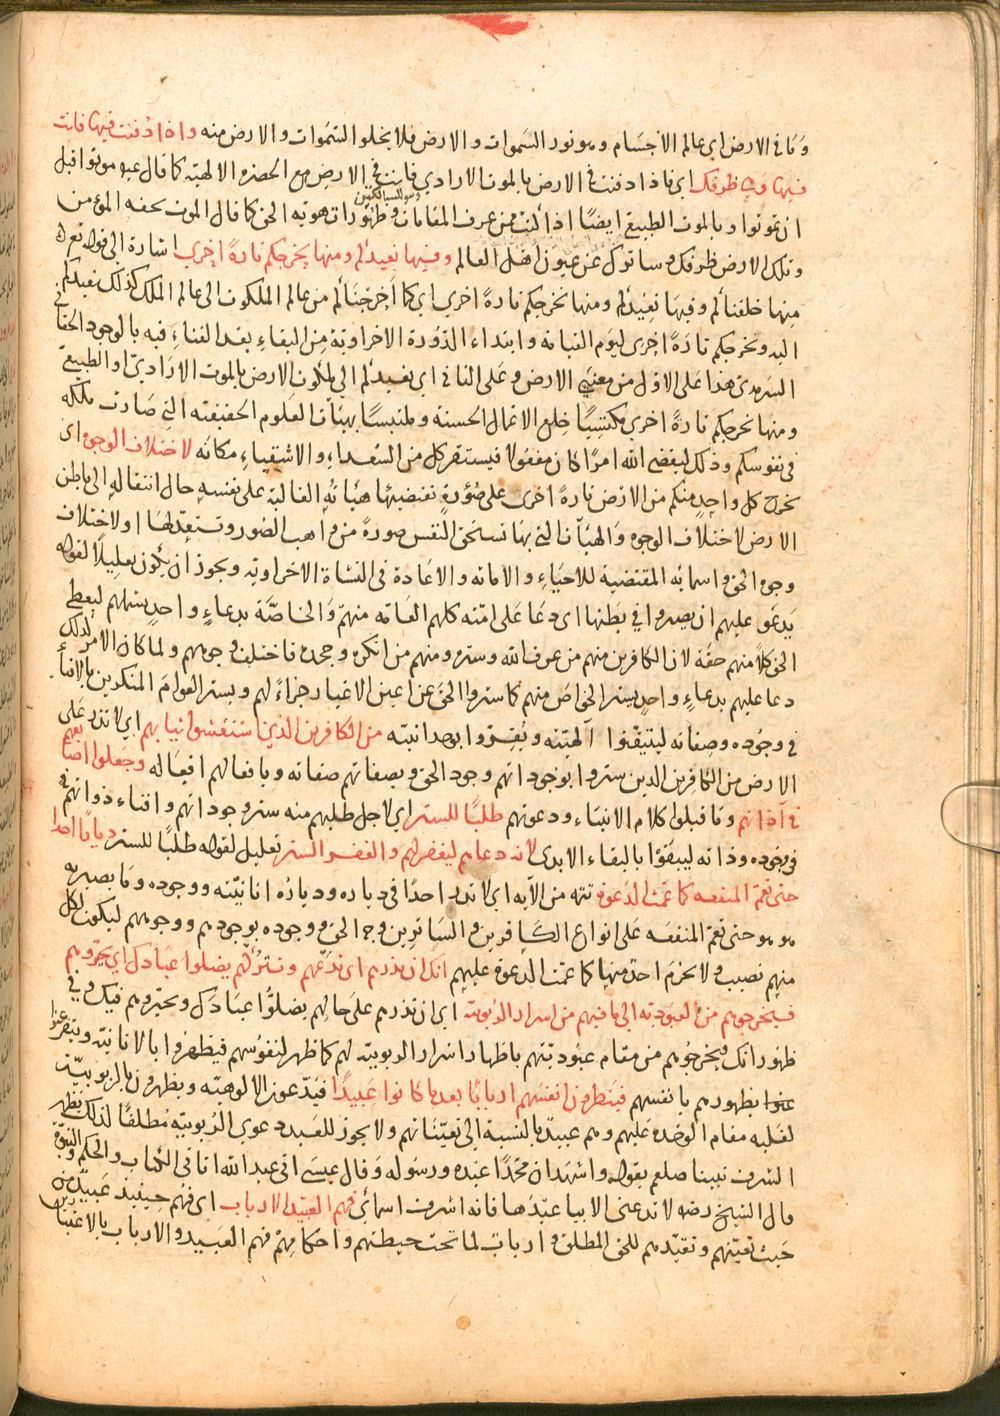 وما في الارض اي عالم الاجسام وهو نور السموات والارض فلا يخلو السموات والارض منه واذا دفنت فيها فانت
فيها وهي ظرفك اي فاذا دفنت في الارض بالموت الارادي فانت في الارض مع الحضرة الالهية كما قال عم موتوا قبل
ان تموتوا وبالموت الطبيعي ايضا اذا كنت ممن عرف المقامات وظهورات هوية الحق كما قال الموت تحفة المؤمن
وتلك الارض ظرفك وساترك عن عيون اهل العالم وفيها نعيدكم ومنها نخرجكم تارة اخرى اشارة الى قوله تعالى
منها خلقناكم وفيها نعيدكم ومنها نخرجكم تارة اخرى اي كما اخرجناكم من عالم الملكوت الى عالم الملك كذلك نعيدكم
اليه ونخرجكم تارة اخرى ليوم القيامة وابتداء الدورة الاخراوية من البقاء بعد الفناء فيه بالوجود الحقاني
السرمدي هذا على الاول من معنيي الارض وعلى الثاني اي نعيدكم الى ملكوت الارض بالموت الارادي او الطبيعي
ومنها نخرجكم تارة اخرى مكتسيا خلع الاعمال الحسنة وملتبسا بهيئات العلوم الحقيقية التي صارت ملكة
في نفوسكم وذلك ليقضي الله امرا كان مفعولا فيستقر كل من السعداء والاشقياء مكانه لاختلاف الوجوه اي
نخرج كل واحد منكم من الارض تارة اخرى على صورة تقتضيها هيأته الغالبة على نفسه حال انتقاله الى باطن
الارض لاختلاف الوجوه والهيآت التي بها تستحق النفس صورة من واهب الصور وتستعد لها او لاختلاف
وجوه الحق واسمائه المقتضية للاحياء والاماتة والاعادة في النشاة الاخراوية ويجوز ان يكون تعليلا لقوله
يدعو عليهم ان يصيروا في بطنها اي دعا على امته كلهم العامة منهم والخاصة بدعاء واحد يشملهم ليعطي
الحق كلا منهم حقه لان الكافرين منهم من عرف الله وستره ومنهم من انكره وجحده فاختلف وجوههم ولما كان الامر كذلك
دعا عليهم بدعاء واحد يستر الخواص منهم كما ستروا الحق عن اعين الاغيار جزاء لهم ويستر العوام المنكرين بالافناء
في وجوده وصفاته ليتيقنوا الهيته ويقروا بوحدانيته من الكافرين الذين استغشوا ثيابهم اي لا تذر على
الارض من الكافرين الذين ستروا بوجوداتهم وجود الحق وبصفاتهم صفاته وبافعالهم افعاله وجعلوا اصابعهم
في آذانهم وما قبلوا كلام الانبياء ودعوتهم طلبا للستر اي لاجل طلبهم منه ستر وجوداتهم وافناء ذواتهم
في وجوده وذاته ليبقوا بالبقاء الابدي لانه دعاهم ليغفر لهم والغفر الستر تعليل لقوله طلبا للستر ديارا احدا
حتى تعم المنفعة كما عمت الدعوة تتمة من الآية اي لا تذر احدا في دياره ودياره انانيته ووجوده وما يصير به
هو هو حتى تعم المنفعة على انواع الكافرين والساترين وجه الحق ووجوده بوجودهم ووجوههم ليكون لكل
منهم نصيب ولا يحرم احد منها كما عمت الدعوة عليهم انك ان تذرهم اي تدعهم وتتركهم يضلوا عبادك اي يحيروهم
فيخرجوهم من العبودية الى ما فيهم من اسرار الربوبية اي ان تذرهم على حالهم يضلوا عبادك ويحيروهم فيك وفي
ظهوراتك ويخرجوهم من مقام عبوديتهم باظهار اسرار الربوبية لهم كما ظهر لنفوسهم فيظهروا بالانانية
بظهورهم بانفسهم فينظرون انفسهم اربابا بعد ما كانوا عبيدا فيدعون الالوهية ويظهرون بالربوبية
لغلبة مقام الوحدة عليهم وهم عبيد بالنسبة الى تعيناتهم ولا يجوز للعبد دعوى الربوبية مطلقا لذلك يظهر
الشرف نبينا صلعم بقوله واشهد ان محمدا عبده ورسوله وقال عيسى اني عبد الله اتاني الكتاب والحكم والنبوة
قال الشيخ رضه لا تدعني الا بيا عبدها فانه اشرف اسمائي فهم العبيد الارباب اي فهم حينئذ عبيد من
حيث تعينهم وتقيدهم للحق المطلق وارباب لما تحت حيطتهم واحكامهم فهم العبيد والارباب بالاعتبارين